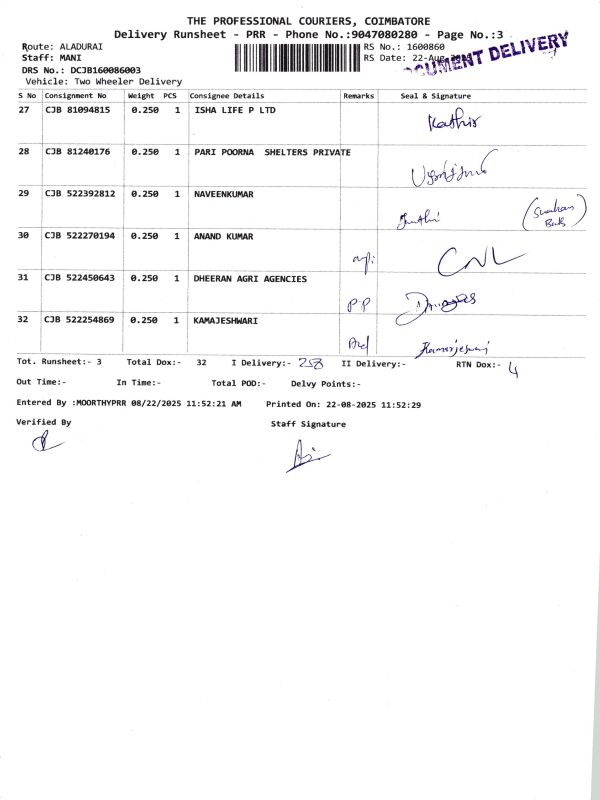 THE PROFESSIONAL COURIERS, COIMBATORE
Delivery Runsheet - PRR - Phone No.:9047080280 - Page No.:3
Route: ALADURAI RS No.: 1600860
Staff: MANI RS Date: 22-Aug-
DOCUMENT DELIVERY
DRS No.: DCJB160086003
Vehicle: Two Wheeler Delivery
S No Consignment No Weight PCS Consignee Details Remarks Seal & Signature
27 CJB 81094815 0.250 1 ISHA LIFE P LTD Kathir
28 CJB 81240176 0.250 1 PARI POORNA SHELTERS PRIVATE
29 CJB 522392812 0.250 1 NAVEENKUMAR
30 CJB 522270194 0.250 1 ANAND KUMAR CNL
31 CJB 522450643 0.250 1 DHEERAN AGRI AGENCIES P.P
32 CJB 522254869 0.250 1 KAMAJESHWARI
Tot. Runsheet:- 3 Total Dox:- 32 I Delivery:- 258 II Delivery:- RTN Dox:- 4
Out Time:- In Time:- Total POD:- Delvy Points:-
Entered By :MOORTHYPRR 08/22/2025 11:52:21 AM Printed On: 22-08-2025 11:52:29
Verified By Staff Signature